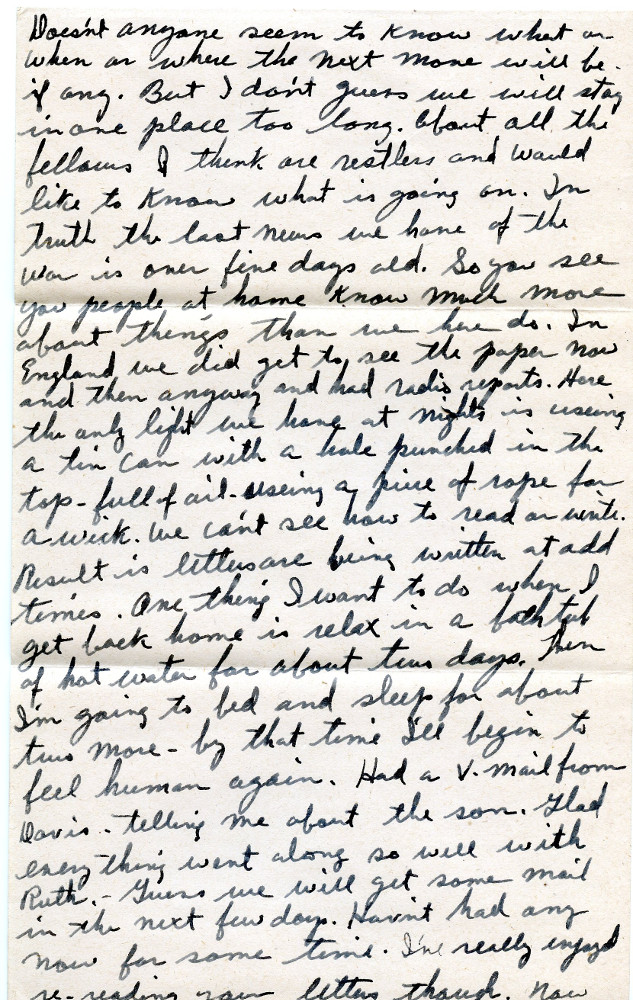 Doesn't anyone seem to know what or
when or where the next move will be -
if any. But I don't guess we will stay
in one place too long. About all the
fellows I think are restless and would
like to know what is going on. In
truth the last news we have of the
war is over five days old. So you see
you people at home know much more
about things than we here do. In
England we did get to see the paper now
and then anyway and had radio reports. Here
the only light we have at nights is useing
a tin can with a hole punched in the
top - full of oil - useing a piece of rope for
a wick. We can't see how to read or write.
Result is letters are being written at odd
times. One thing I want to do when I
get back home is relax in a bath tub
of hot water for about two days. Then
I'm going to bed and sleep for about
two more - by that time I'll begin to
feel human again. Had a V-mail from
Davis - telling me about the son. Glad
everything went along so well with
Ruth. - Guess we will get some mail
in the next few days. Havn't had any
now for some time. I've really enjoyed
re-reading your letters though. Now